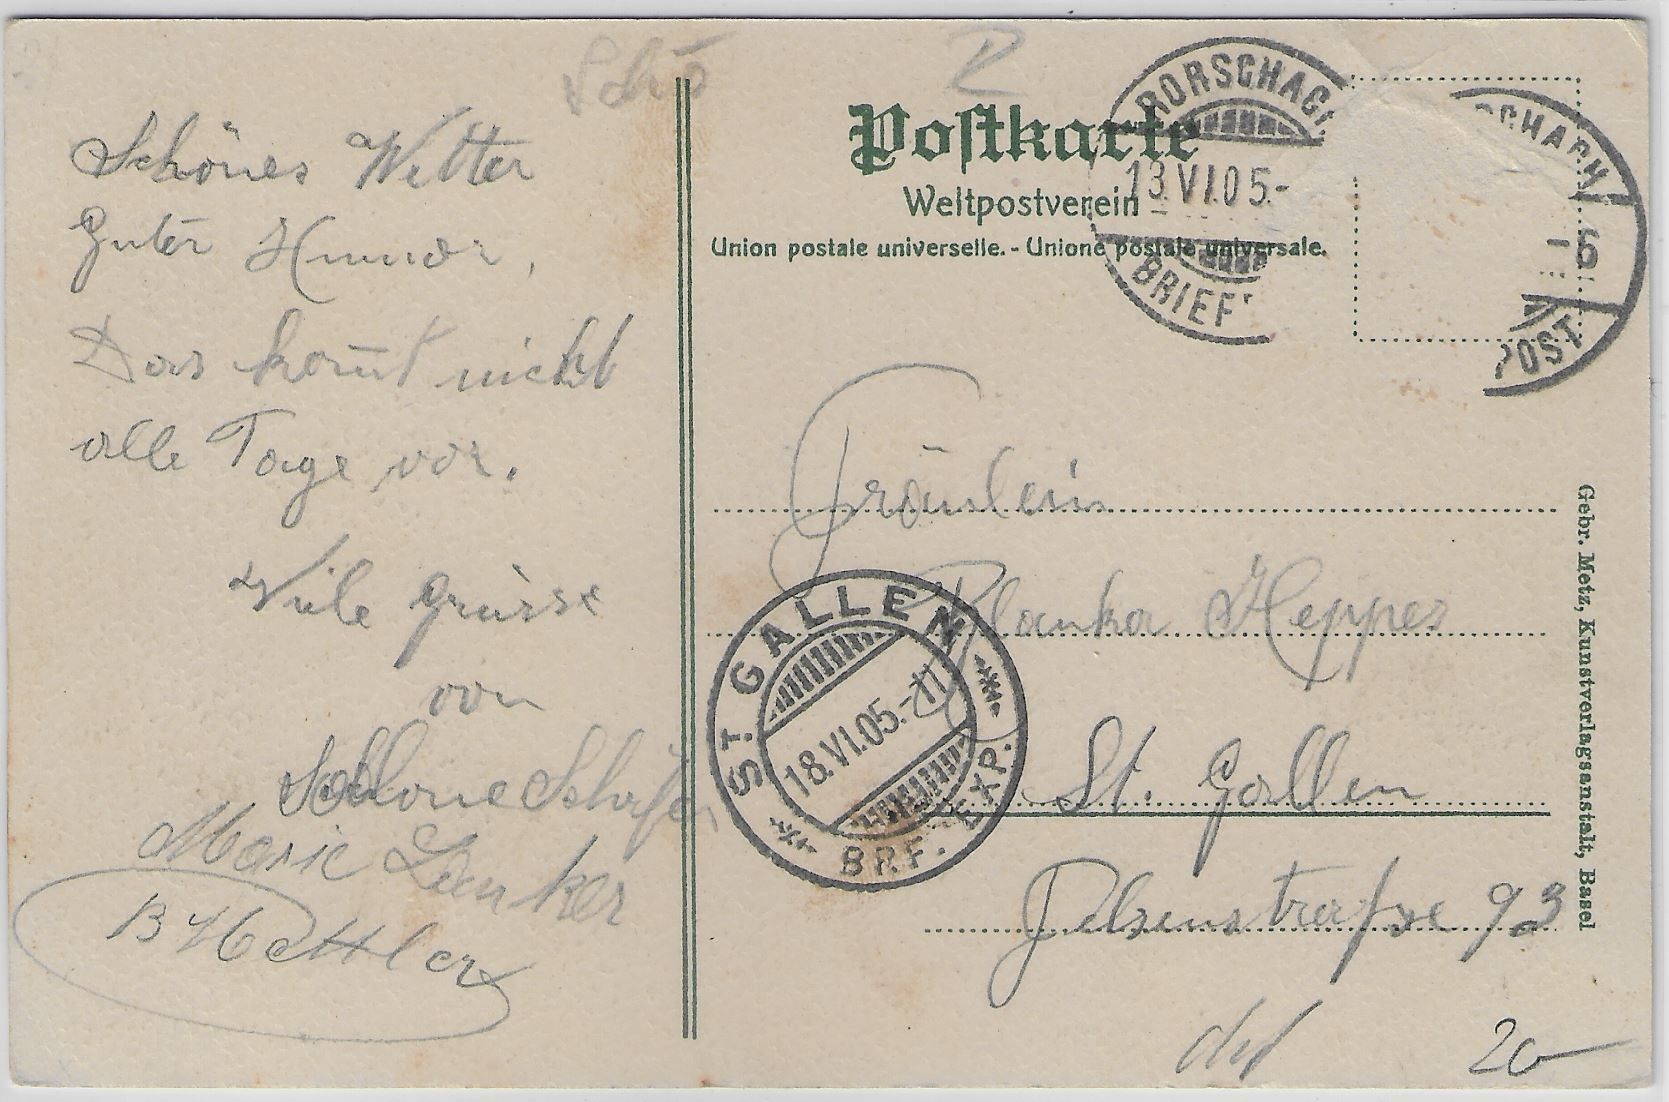 Schönes Wetter
Guter Humor,
Das kom̄t nicht
alle Tage vor.
Viele Grüsse
von
Marie Lenker
B Mettler
Postkarte
Weltpostverein
Union postale universelle. - Unione postale universale.
RORSCHACH
13.VI.05.-
BRIEF
SCHACH
-6
POST
Fräulein
Blanka Hepper
St. Gallen
Felsenstraße 93
ST GALLEN
18.VI.05.-11
BRF. EXP.
20
Gebr. Metz, Kunstverlagsanstalt, Basel